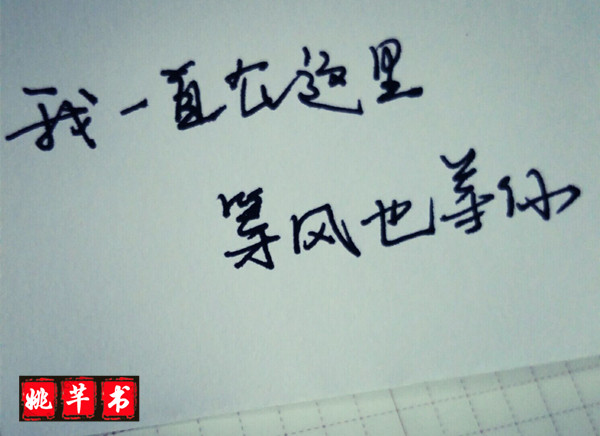 我一直在这里
等风也等你
姚芊书